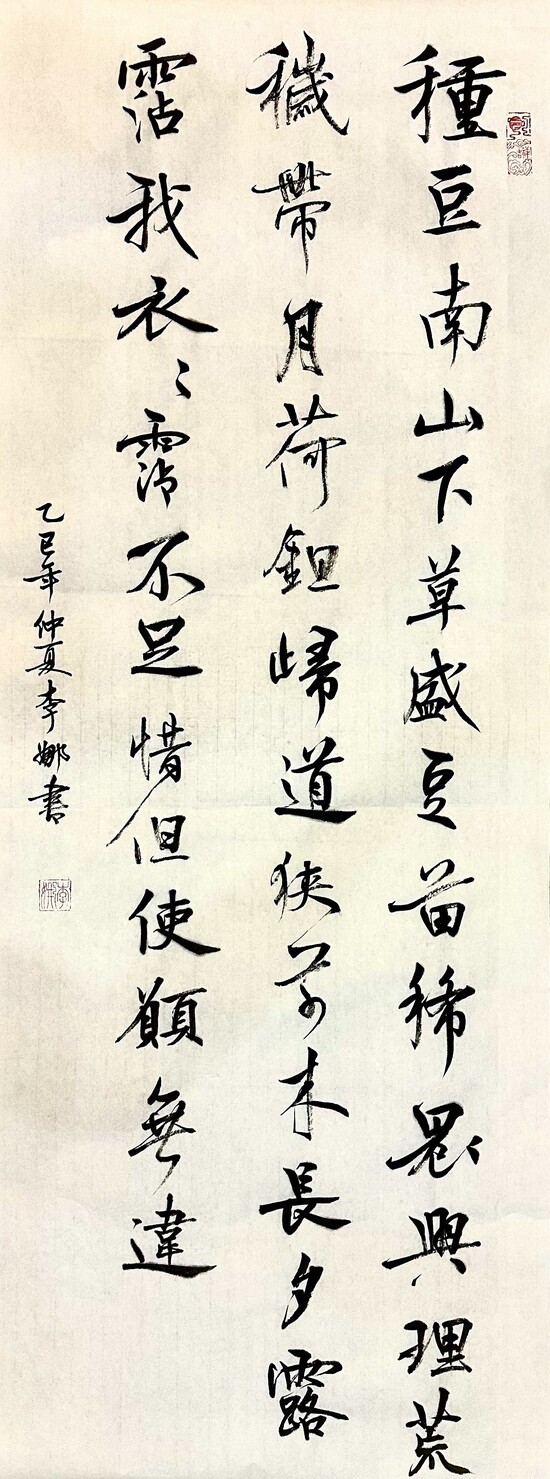 種豆南山下草盛豆苗稀晨興理荒
穢帶月荷鉏歸道狹草木長夕露
霑我衣〻霑不足惜但使願無違
乙巳年仲夏李娜書